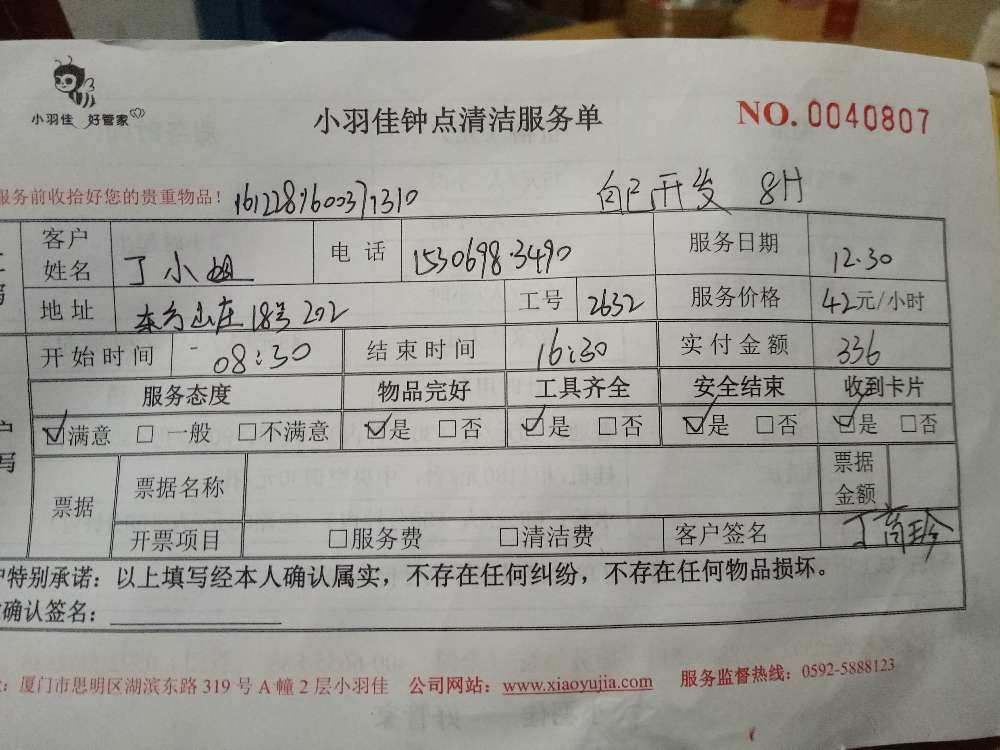 小羽佳 好管家
小羽佳钟点清洁服务单
NO. 0040807
服务前收拾好您的贵重物品!
自己开发 8H
客户姓名 丁小姐 电话 15306983490 服务日期 12.30
地址 18号202 工号 2632 服务价格 42元/小时
开始时间 08:30 结束时间 16:30 实付金额 336
服务态度 物品完好 工具齐全 安全结束 收到卡片
☑满意 □一般 □不满意 ☑是 □否 ☑是 □否 ☑是 □否 ☑是 □否
票据 票据名称 票据金额
开票项目 □服务费 □清洁费 客户签名
户特别承诺:以上填写经本人确认属实,不存在任何纠纷,不存在任何物品损坏。
确认签名:
厦门市思明区湖滨东路 319 号 A 幢 2 层小羽佳 公司网站:www.xiaoyujia.com 服务监督热线:0592-5888123